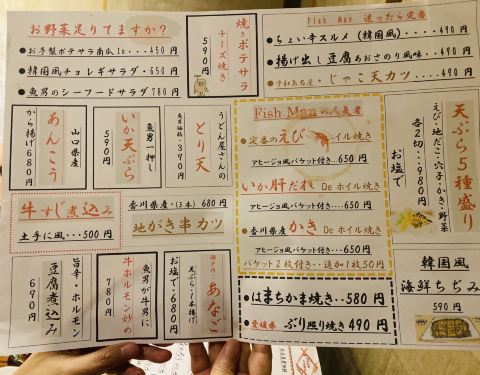 お野菜足りてますか?
●お手製ポテサラ南瓜In・・・450円
●韓国風チョレギサラダ・650円
●魚男のシーフードサラダ780円
焼きポテサラ
チーズ焼き
590円
Fish Man 迷ったら定番
●ちょい辛スルメ(韓国風)・・・・490円
●揚げ出し豆腐あおさのり風味・・490円
じゃこ天カツ・・・・490円
あんこう
から揚げ680円
山口県産
いか天ぷら
590円
魚男一押し
とり天
うどん屋さんの
390円
Fish Manの人気者
定番のえびホイル焼き
アヒージョ風バケット付き・・650円
いか肝だれ Deホイル焼き
アヒージョ風バケット付き・・650円
香川県産かき Deホイル焼き
アヒージョ風バケット付き・・・650円
バケット2枚付き・追加1枚50円
天ぷら5種盛り
えび・地だこ・穴子・かき・野菜
各2切・・・980円
お塩で
牛すじ煮込み
土手に風・・・500円
香川県産・(5本)680円
地がき串カツ
旨辛・ホルモン
豆腐煮込み
690円
牛ホルモン炒め
魚男が牛男に
780円
あなご
天ぷら・1本揚げ
お塩で・680円
●はまちかま焼き・・580円
●愛媛県 ぶり照り焼き490円
韓国風
海鮮ちぢみ
590円